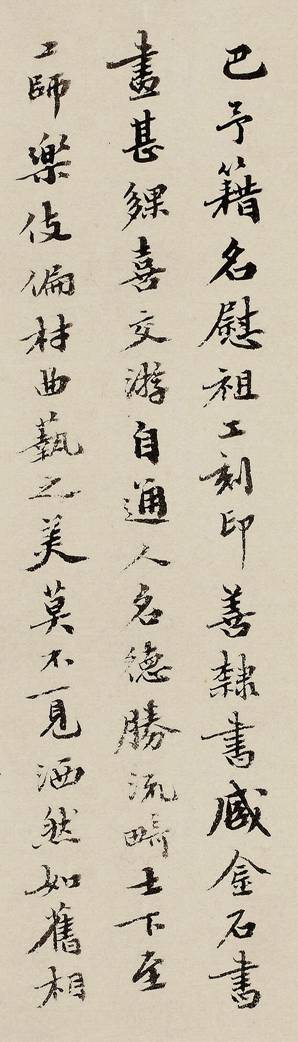 巴予籍名慰祖工刻印善隸書臧金石書
畫甚夥喜交游自通人名德勝流畸士下至
工師樂伎偏材曲藝之美莫不一見洒然如舊相